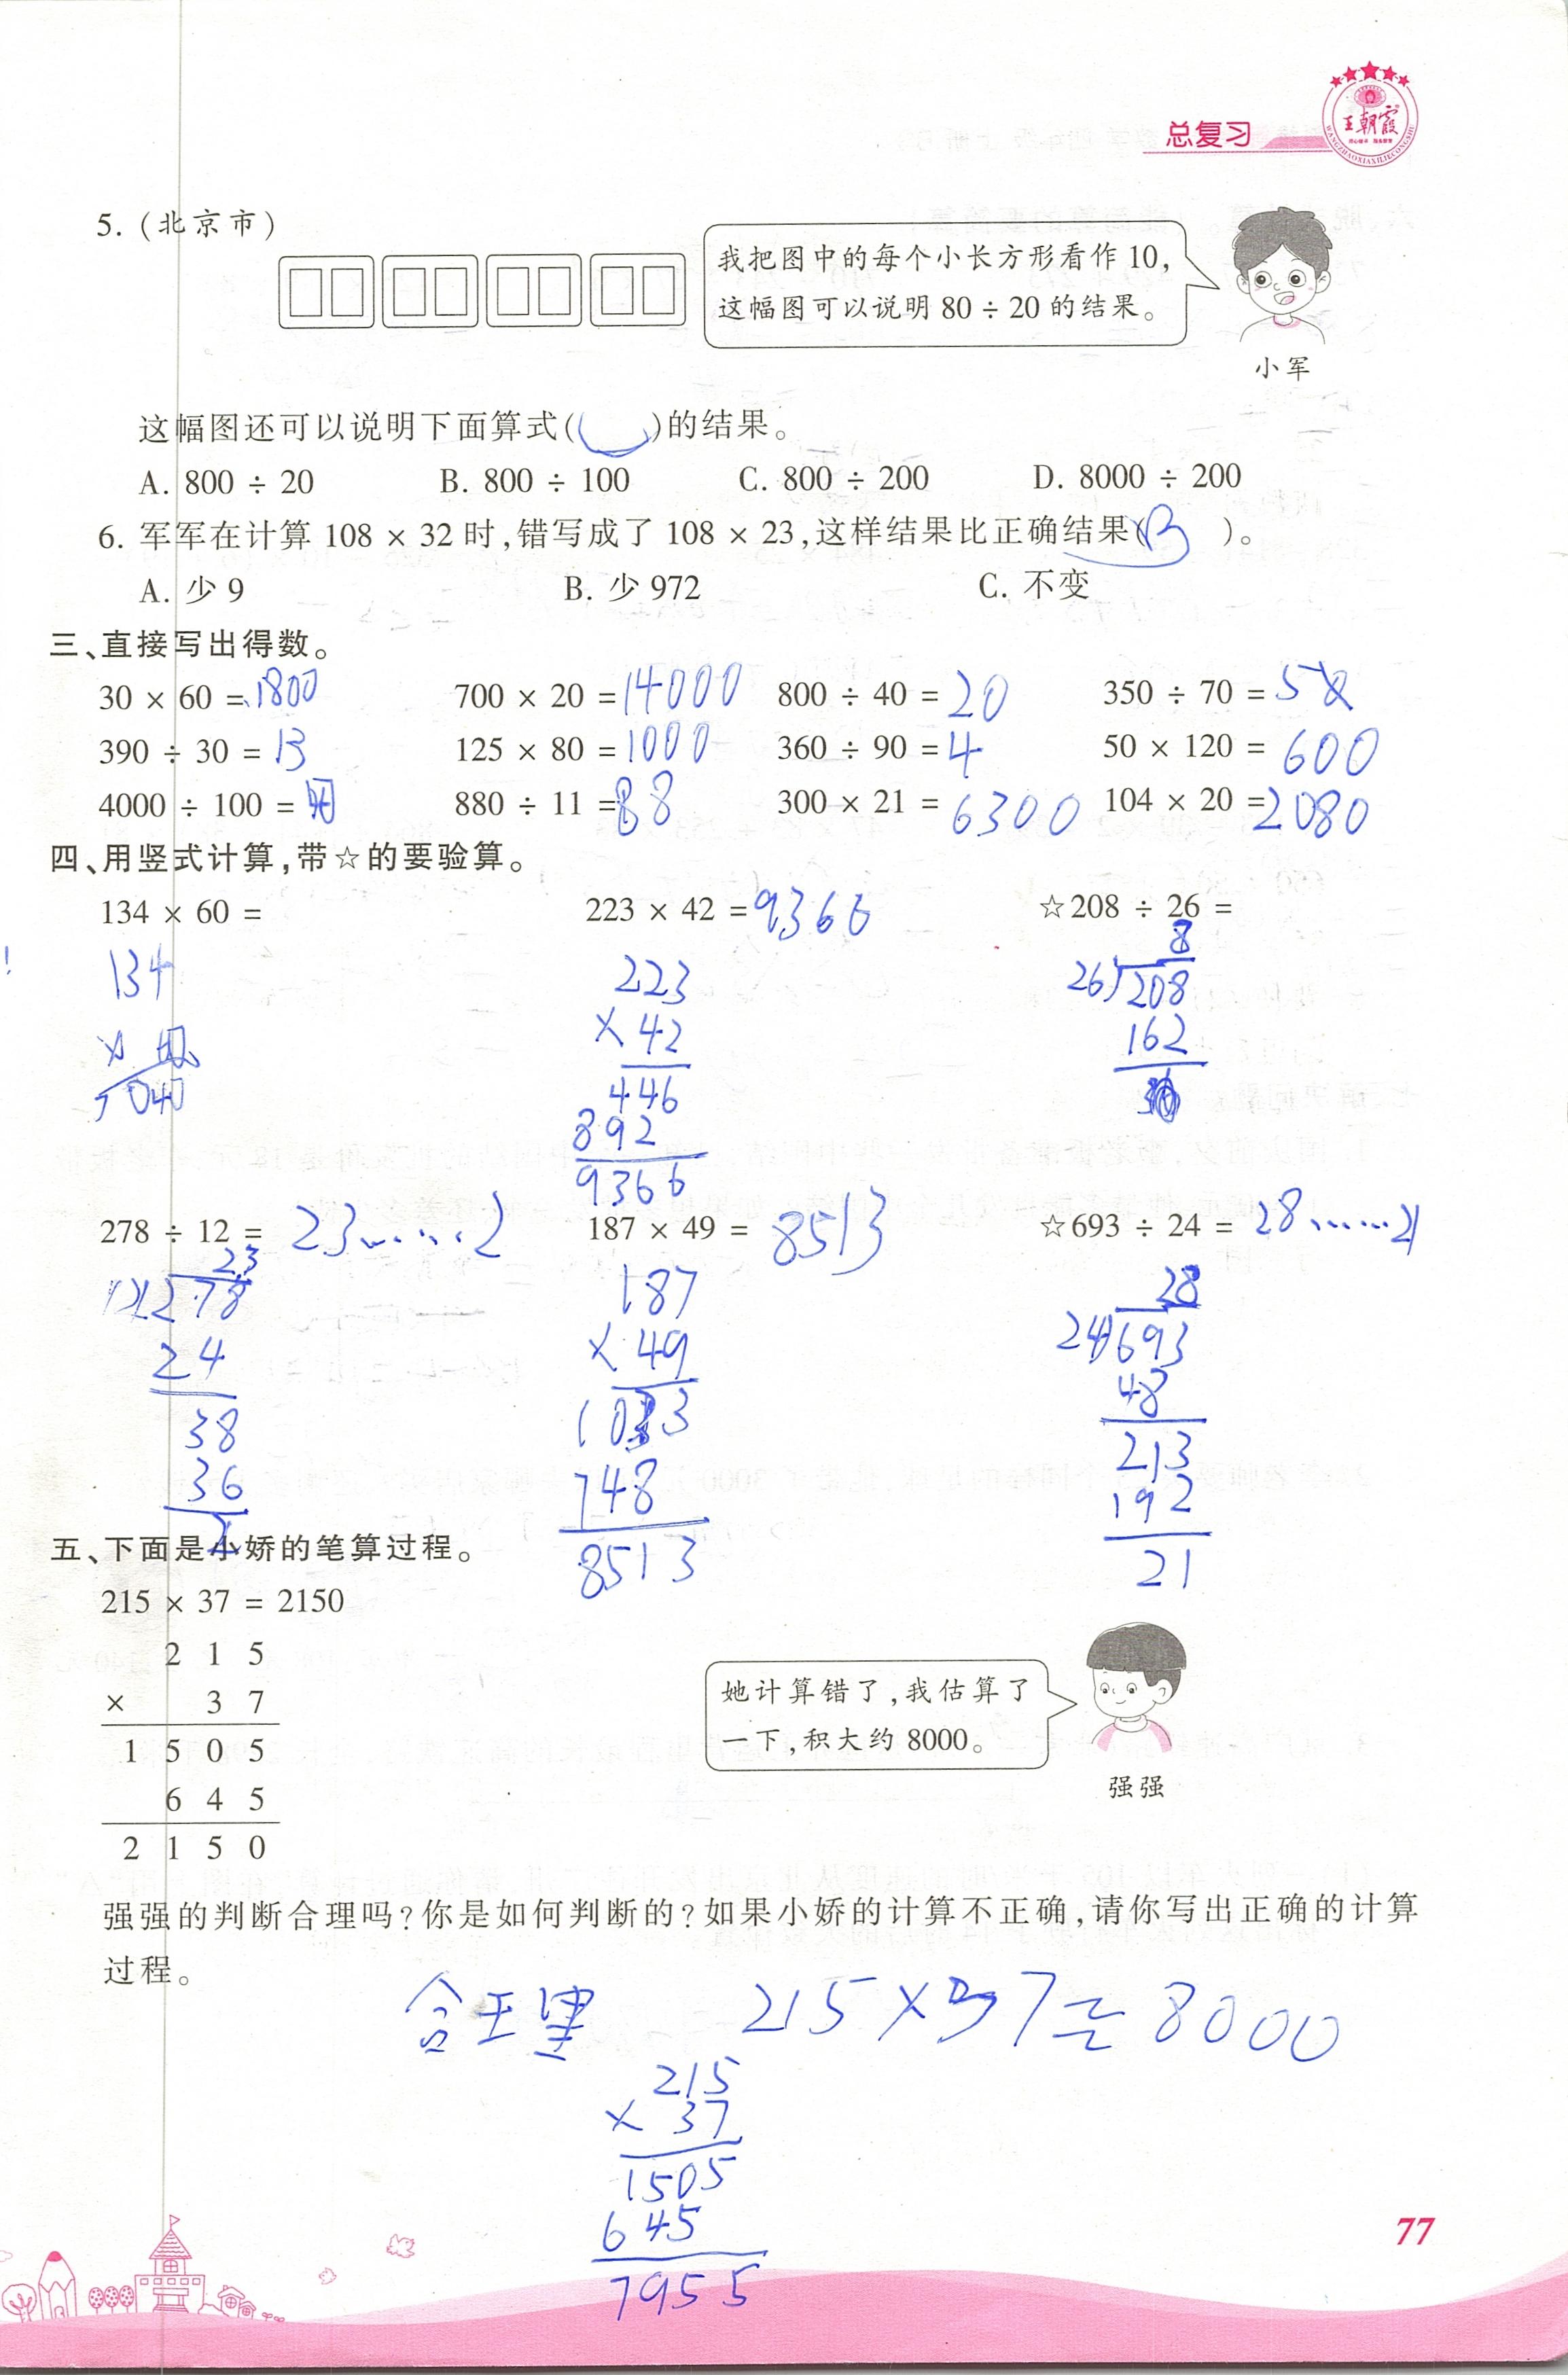 总复习
王朝霞
WANGZHAOXIAXILIECONGSHU
5. (北京市)
我把图中的每个小长方形看作 10,
这幅图可以说明 80 ÷ 20 的结果。
小军
这幅图还可以说明下面算式( )的结果。
A. 800 ÷ 20 B. 800 ÷ 100 C. 800 ÷ 200 D. 8000 ÷ 200
6. 军军在计算 108 × 32 时,错写成了 108 × 23,这样结果比正确结果(B)。
A. 少 9 B. 少 972 C. 不变
三、直接写出得数。
30 × 60 = 1800 700 × 20 = 14000 800 ÷ 40 = 20 350 ÷ 70 = 5
390 ÷ 30 = 13 125 × 80 = 1000 360 ÷ 90 = 4 50 × 120 = 600
4000 ÷ 100 = 880 ÷ 11 = 88 300 × 21 = 6300 104 × 20 = 2080
四、用竖式计算,带☆的要验算。
134 × 60 = 223 × 42 = 9366 ☆208 ÷ 26 =
134
×
7040
223
× 42
446
892
9366
8
26)208
162
278 ÷ 12 = 23……2 187 × 49 = 8513 ☆693 ÷ 24 = 28……21
23
12)278
24
38
36
2
187
× 49
10 3
748
8513
28
24)693
48
213
192
21
五、下面是小娇的笔算过程。
215 × 37 = 2150
2 1 5
× 3 7
1 5 0 5
6 4 5
2 1 5 0
她计算错了,我估算了
一下,积大约 8000。
强强
强强的判断合理吗?你是如何判断的?如果小娇的计算不正确,请你写出正确的计算
过程。
合理 215×37≈8000
215
× 37
1505
645
7955
77